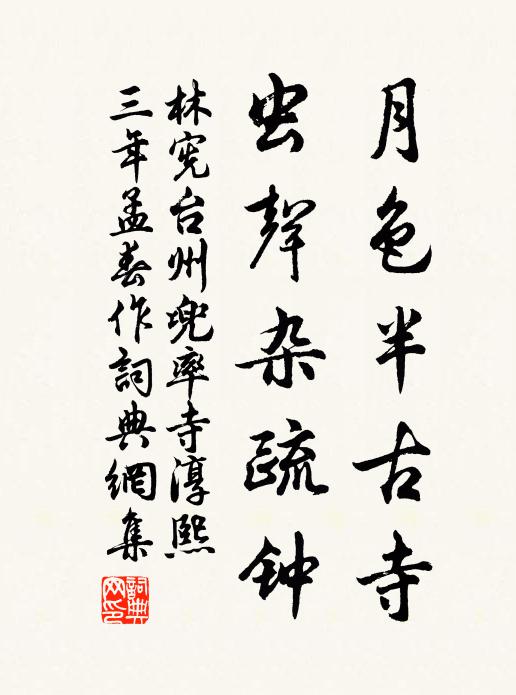 月色半古寺
虫聲杂疏钟
林宪台州兜率寺淳熙
三年孟春作詞典網集
詞典網印